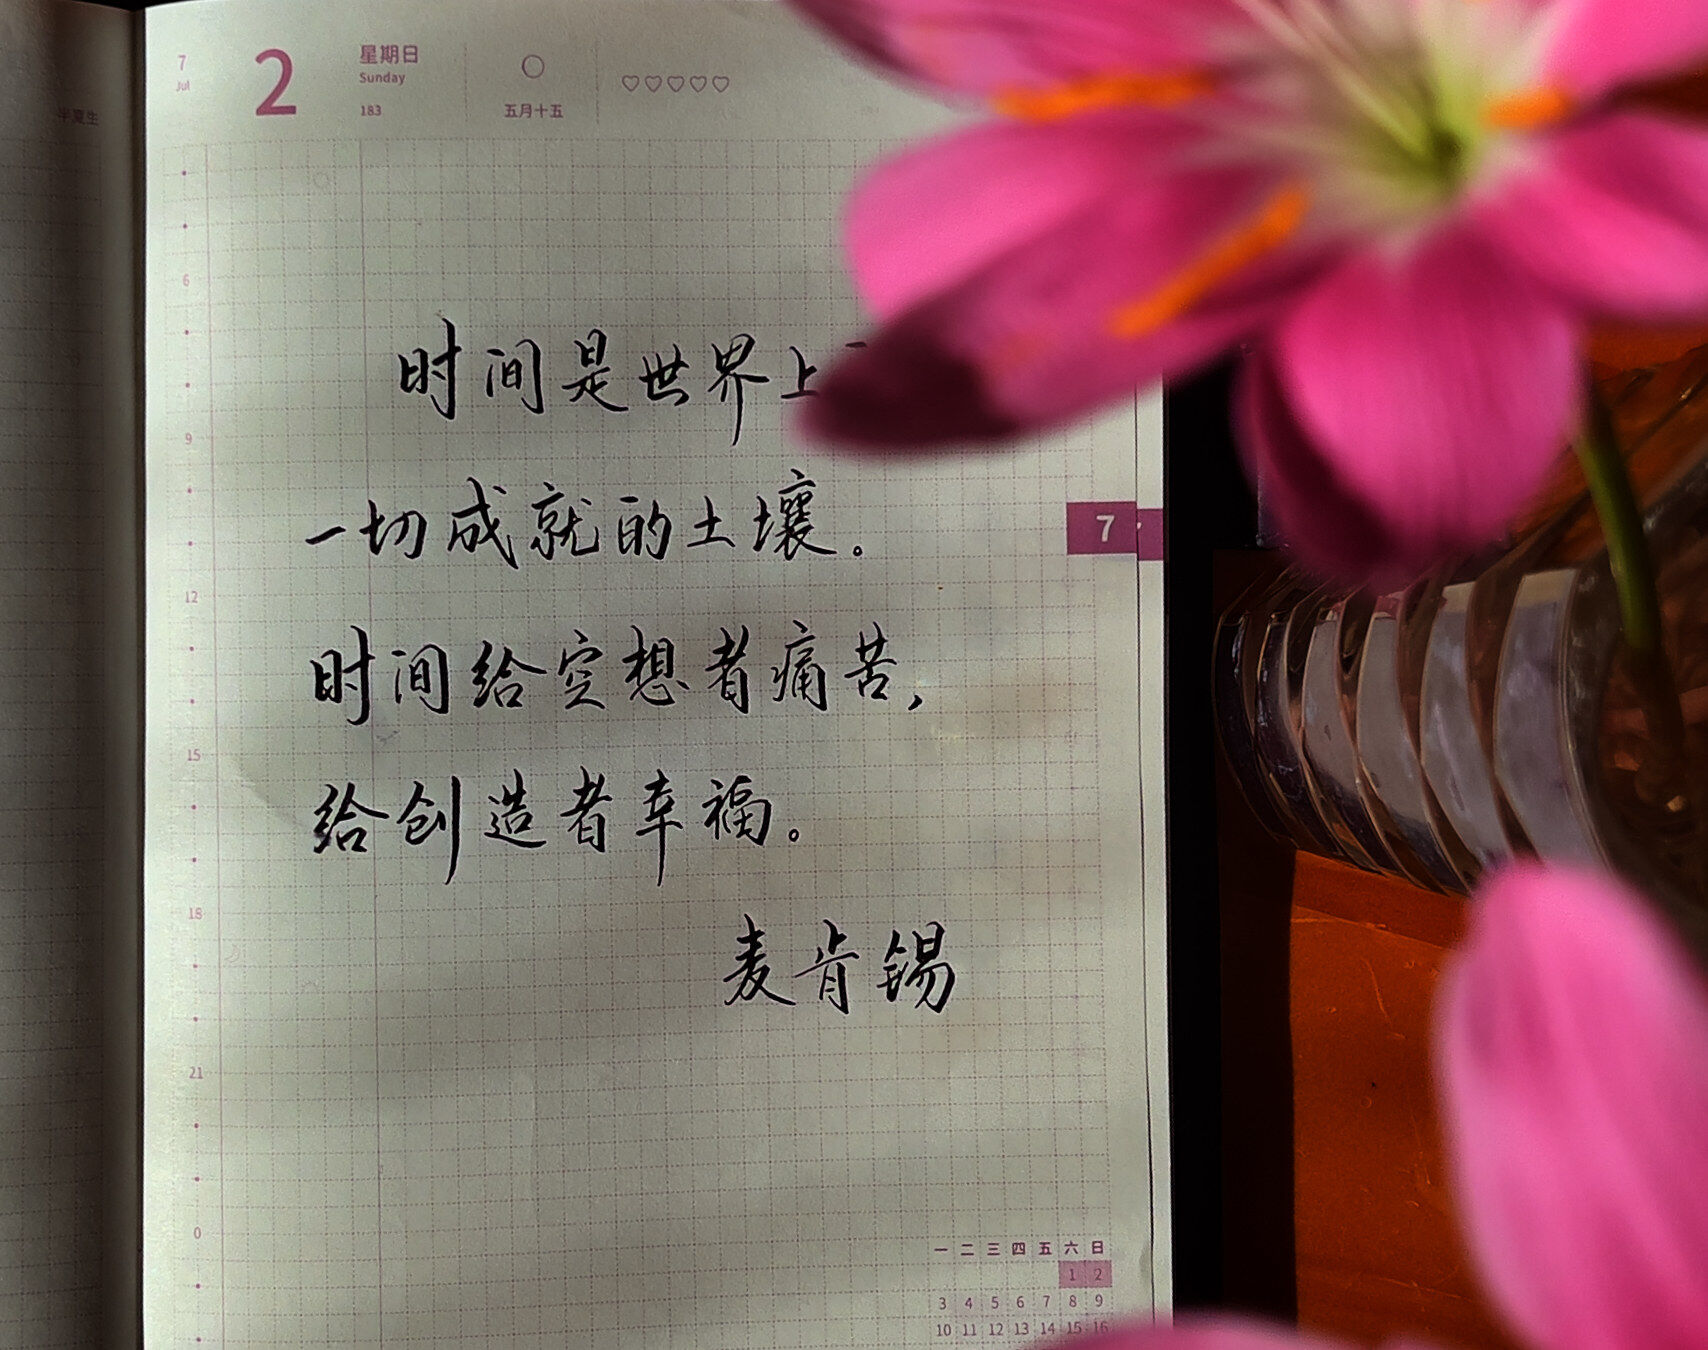 7
Jul
2
星期日
Sunday
183
五月十五
半夏生
时间是世界上
一切成就的土壤。
时间给空想者痛苦，
给创造者幸福。
麦肯锡
7
6
9
12
15
18
21
0
一 二 三 四 五 六 日
1 2
3 4 5 6 7 8 9
10 11 12 13 14 15 16